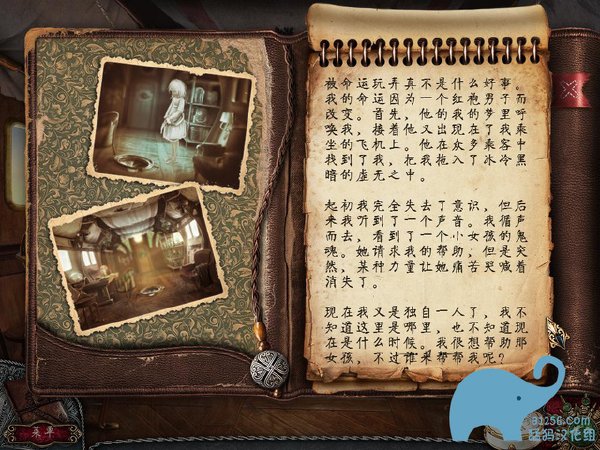 被命运玩弄真不是什么好事。
我的命运因为一个红袍男子而
改变。首先，他的我的梦里呼
唤我，接着他又出现在了我乘
坐的飞机上。他在众多乘客中
找到了我，把我拖入了冰冷黑
暗的虚无之中。
起初我完全失去了意识，但后
来我听到了一个声音。我循声
而去，看到了一个小女孩的鬼
魂。她请求我的帮助，但是突
然，某种力量让她痛苦哭喊着
消失了。
现在我又是独自一人了，我不
知道这里是哪里，也不知道现
在是什么时候。我很想帮助那
女孩，不过谁来帮帮我呢？
菜单
a1256.com
猛犸汉化组